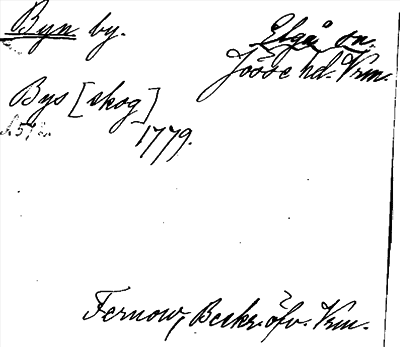 Byn by.
Elgå sn.
Jösse hd. Vrm.
Bys [skog]
1779.
Fernow, Beskr. öfv. Vrm.